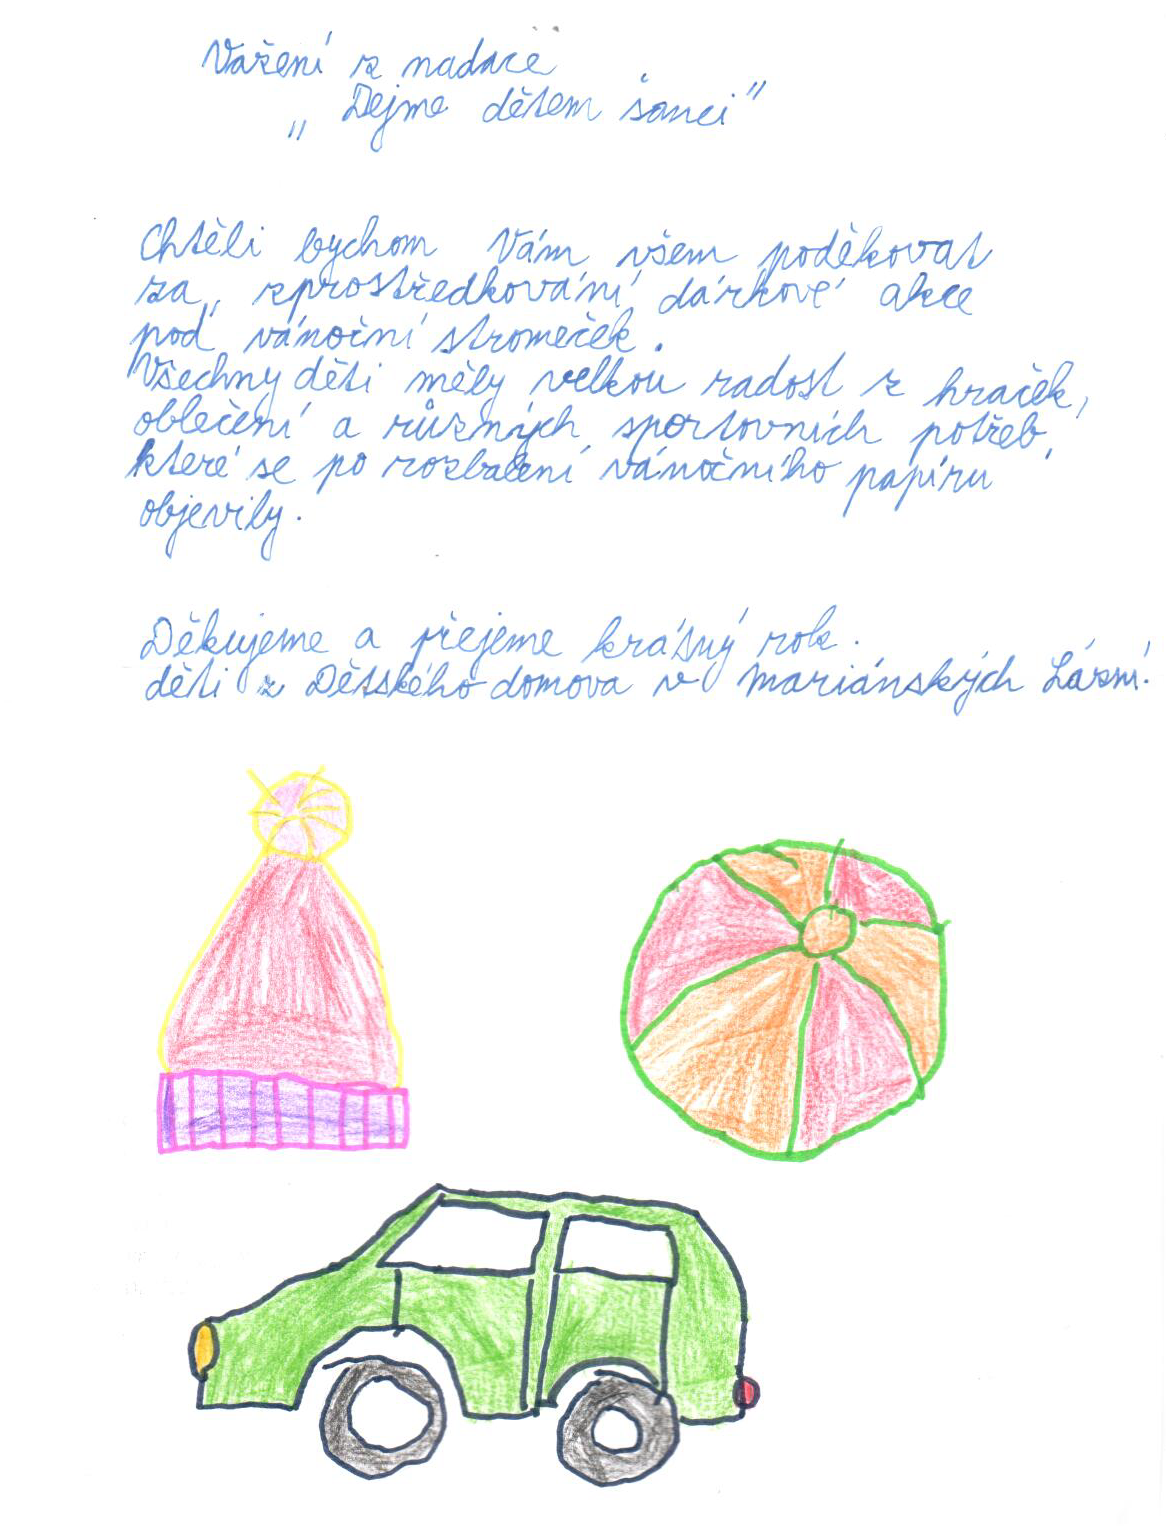 Vážení z nadace
„Dejme dětem šanci"
Chtěli bychom Vám všem poděkovat
za zprostředkování dárkové akce
pod vánoční stromeček.
Všechny děti měly velkou radost z hraček,
oblečení a různých sportovních potřeb,
které se po rozbalení vánočního papíru
objevily.
Děkujeme a přejeme krásný rok.
děti z Dětského domova v Mariánských Lázní.